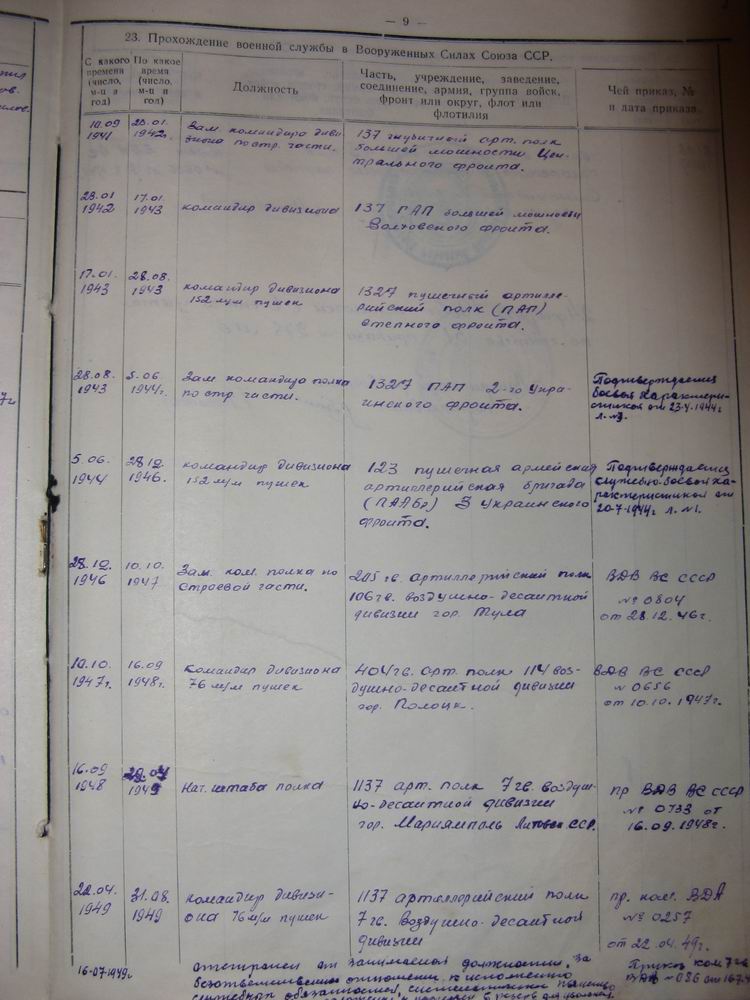 — 9 —
23. Прохождение военной службы в Вооруженных Силах Союза ССР.
С какого времени (число, м-ц и год)
По какое время (число, м-ц и год)
Должность
Часть, учреждение, заведение, соединение, армия, группа войск, фронт или округ, флот или флотилия
Чей приказ, № и дата приказа
10.09 1941
28.01. 1942г.
Зам командира диви
зиона по стр. части.
137 гаубичный арт. полк
большой мощности Цен-
трального фронта.
28.01 1942
17.01. 1943
командир дивизиона
137 ГАП большей мощности
Волховского фронта.
17.01. 1943
28.08. 1943
командир дивизиона
152 м/м пушек
1327 пушечный артилле-
рийский полк (ПАП)
Степного фронта.
28.08. 1943
5.06. 1944г.
Зам командира полка
по стр части.
1327 ПАП 2-го Укра-
инского фронта.
Подтверждается
боевой характери-
стикой от 23.4.1944г
5.06. 1944
28.12. 1946.
командир дивизиона
152 м/м пушек
123 пушечная армейская
артиллерийская бригада
(ПААБр) 3 Украинского
фронта.
Подтверждается
служебно-боевой ха-
рактеристикой от
20.7.1944г л. №1.
28.12. 1946
10.10. 1947
Зам. ком. полка по
строевой части.
205 гв. артиллерийский полк
106 гв. воздушно-десантной
дивизии гор. Тула
ВДВ ВС СССР
№ 0804
от 28.12.46г.
10.10. 1947г.
16.09 1948г.
Командир дивизиона
76 м/м пушек
404 гв. арт. полк 114 воз-
душно-десантной дивизии
гор. Полоцк.
ВДВ ВС СССР
№ 0656
от 10.10.1947г.
16.09 1948
1949
Нач. штаба полка
1137 арт. полк 7 гв. воздуш-
но-десантной дивизии
гор. Мариямполь Литовск ССР.
пр ВДВ ВС СССР
№ 0733 от
16.09.1948г.
22.04. 1949
31.08. 1949
командир дивизи-
она 76 м/м пушек
1137 артиллерийский полк
7 гв. Воздушно-десантной
дивизии
пр. ком. ВДА
№ 0257
от 22.04.49г.
16-07-1949г.
отстранен от занимаемой должности, за
безответственное отношение к исполнению
служебных обязанностей, систематическое
Приказ ком 7 гв